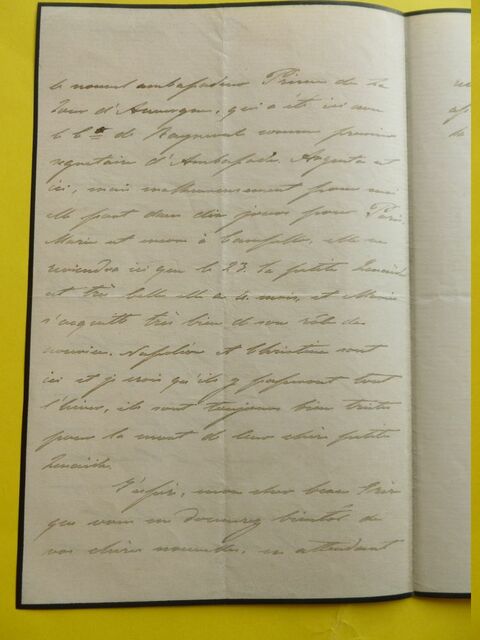 le nouvel ambassadeur Prince de La
Tour d'Auvergne, qui a été ici avec
le Cte de Rayneval comme premier
secrétaire d'Ambassade. Augusta est
ici, mais malheureusement pour moi
elle part dans dix jours pour Paris.
Marie est encore à Campello, elle ne
reviendra ici que le 23. La petite Zénaïde
est très belle elle a 4 mois, et Marie
s'acquitte très bien de son rôle de
nourrice. Napoléon et Christine sont
ici et je crois qu'ils y passeront tout
l'hiver, ils sont toujours bien tristes
pour la mort de leur chère petite
Zénaïde.
J'espère, mon cher beau Frère
que vous me donnerez bientôt de
vos chères nouvelles, en attendant